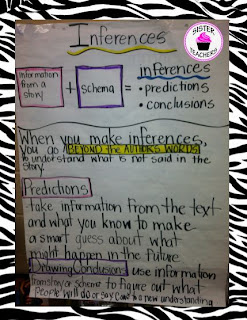 Inferences
SISTER
TEACHERS
Information
from a
story
+
schema
=
inferences
• predictions
• conclusions
When you make inferences
you go BEYOND the AUTHOR'S WORDS
to understand what is not said in the
story.
Predictions
take information from the text
and what you know to make
a smart guess about what
might happen in the future
Drawing Conclusions use information
from story or schema to figure out what
people will do or say. Come to a new understanding